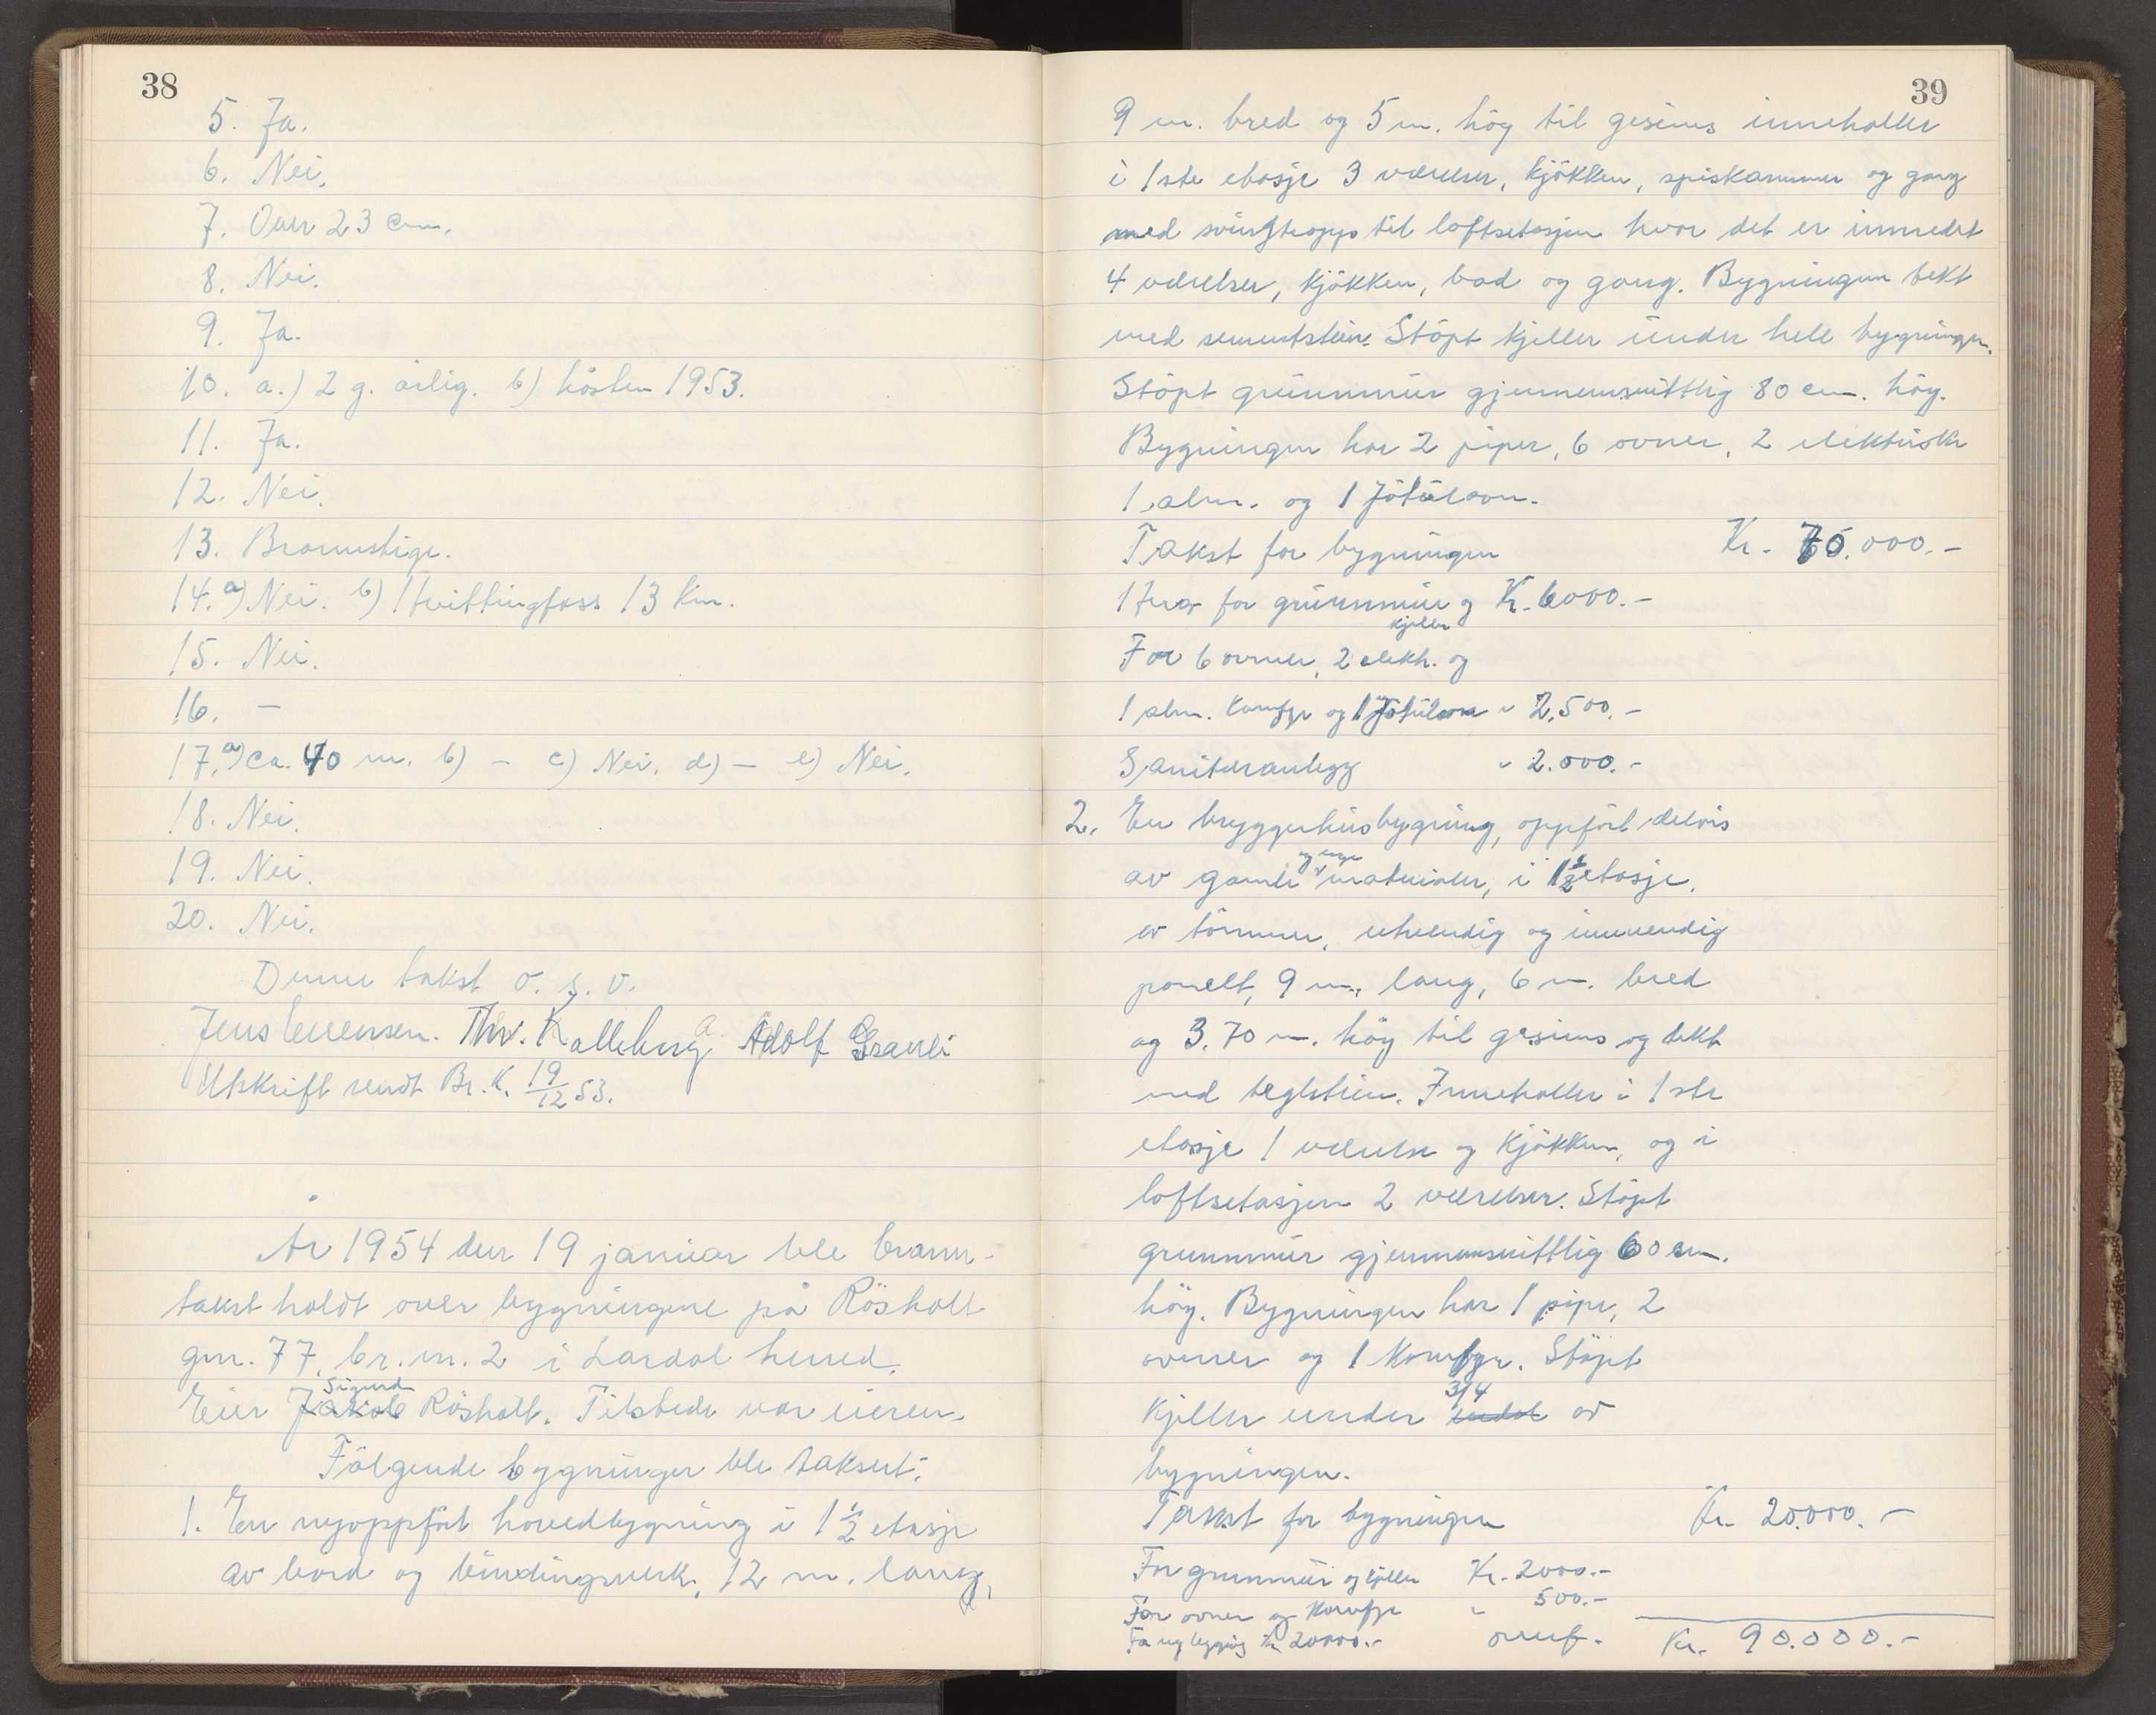 38
5. Ja.
6. Nei.
7. Over 23 cm.
8. Nei.
9. Ja.
10. a.) 2 g. årlig. b) hösten 1953.
11. Ja.
12. Nei.
13. Brannstige.
14. a) Nei. b) Hvittingfoss 13 km.
15. Nei.
16. –
17. a) ca. 40 m. b) – c) Nei. d) – e) Nei.
18. Nei.
19. Nei.
20. Nei.
Denne takst o. s. v.
Jens Evensen. Thv. Kalleberg Adolf Granli
Utskrift sendt Br. K. 19/12 53.
År 1954 den 19 januar ble brann-
takst holdt over bygningene på Rösholt
gnr. 77, br. nr. 2 i Lardal herred.
Sigurd
Eier Jakob Rösholt. Tilstede var eieren.
Fölgende bygninger ble taksert:
1. En nyoppfört hovedbygning i 1 1/2 etasje
av bord og bindingsverk, 12 m. lang,
39
9 m. bred og 5 m. höy til gesims inneholder
i 1ste etasje 3 værelser, kjökken, spiskammer og gang
med svingtrapp til loftsetasjen hvor det er innredet
4 værelser, kjökken, bad og gang. Bygningen tekt
med sementstein. Stöpt kjeller under hele bygningen.
Stöpt grunnmur gjennemsnittlig 80 cm. höy.
Bygningen har 2 piper, 6 ovner, 2 elektriske
1 alm. og 1 Jötulovn.
Takst for bygningen Kr. 70.000.–
Herav for grunnmur og Kr. 6000.–
kjeller
For 6 ovner, 2 elektr. og
1 alm. komfyr og 1 Jötulovn " 2,500.–
Saniteranlegg " 2.000.–
2. En bryggerhusbygning, oppfört delvis
og nye
av gamle materialer, i 1 1/2 etasje,
av tömmer, utvendig og innvendig
panelt, 9 m. lang, 6 m. bred
og 3.70 m. höy til gesims og tekt
med teglstein. Inneholder i 1ste
etasje 1 værelse og kjökken, og i
loftsetasjen 2 værelser. Stöpt
grunnmur gjennemsnittlig 60 cm.
höy. Bygningen har 1 pipe, 2
ovner og 1 komfyr. Stöpt
3/4
kjeller under av
bygningen.
Takst for bygningen Kr. 20.000.–
For grunnmur og kjeller Kr. 2000.–
For ovner og komfyr " 500.–
For ny bygning Kr 20000.– overf. Kr. 90.000.–